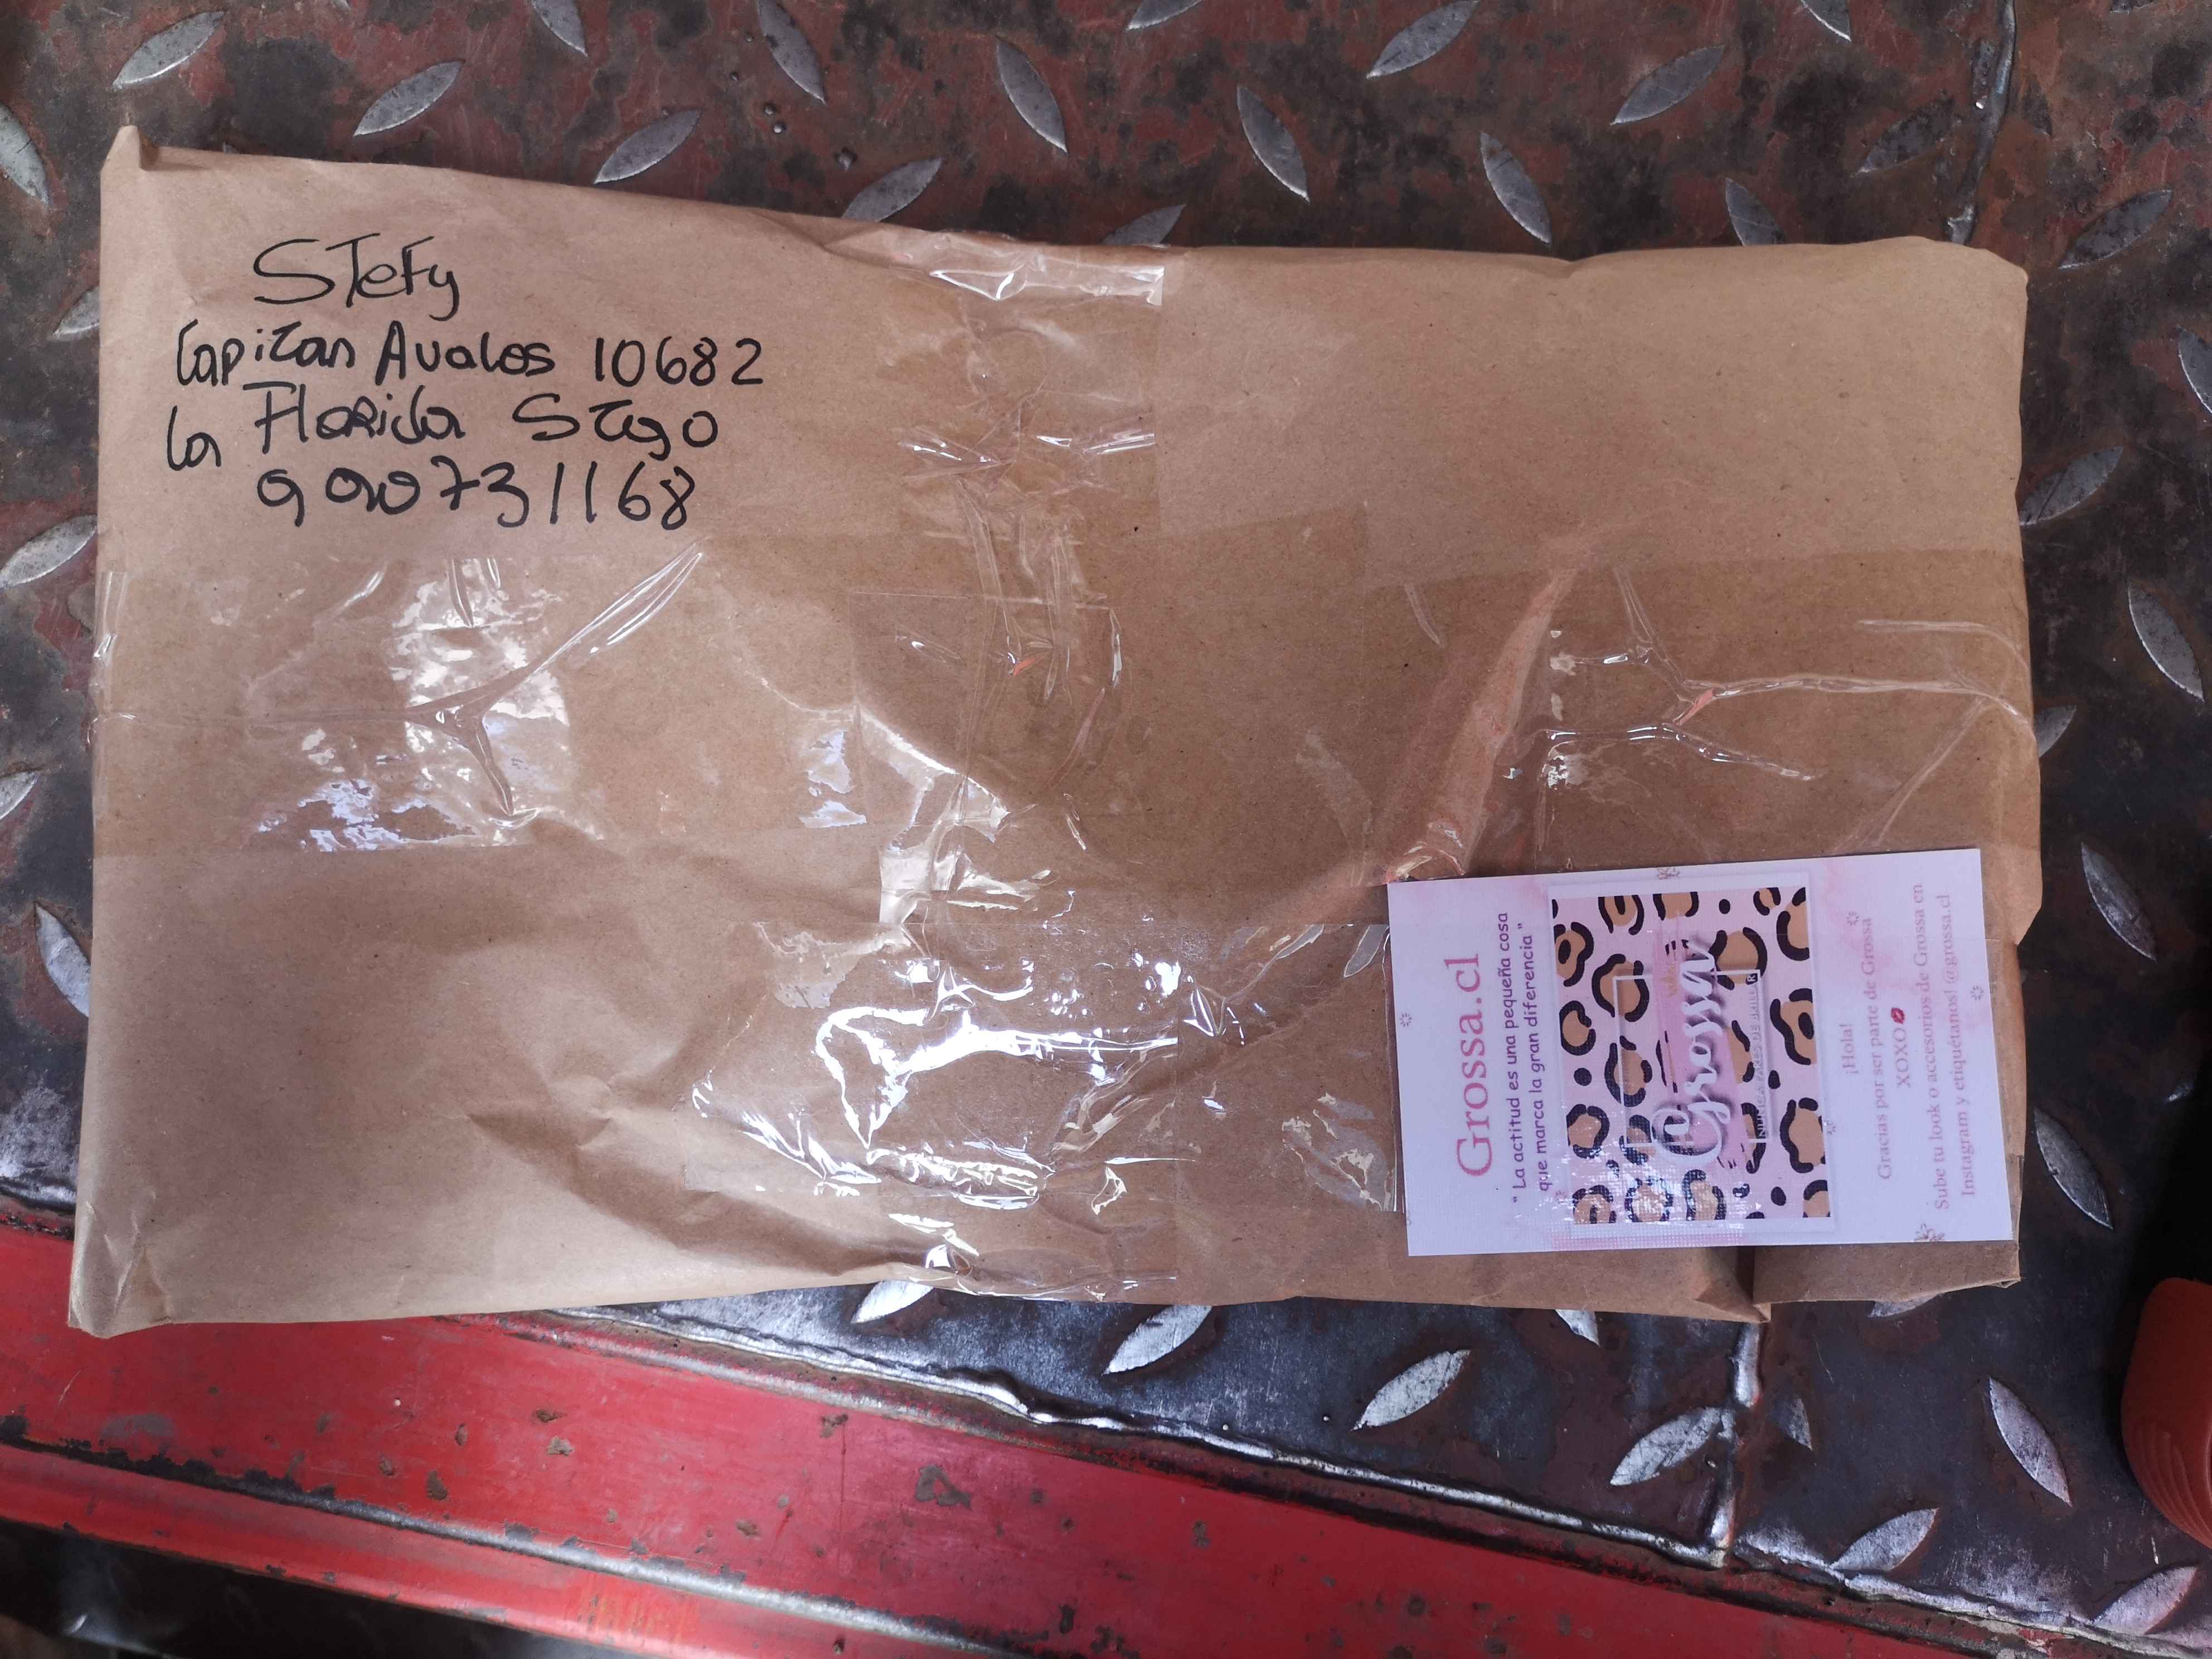 STefy
Capitan Avalos 10682
la Florida Stgo
990731168
Grossa.cl
" La actitud es una pequeña cosa
que marca la gran diferencia "
Grossa
¡Hola!
Gracias por ser parte de Grossa
XOXO
Sube tu look o accesorios de Grossa en
Instagram y etiquétanos! @grossa.cl